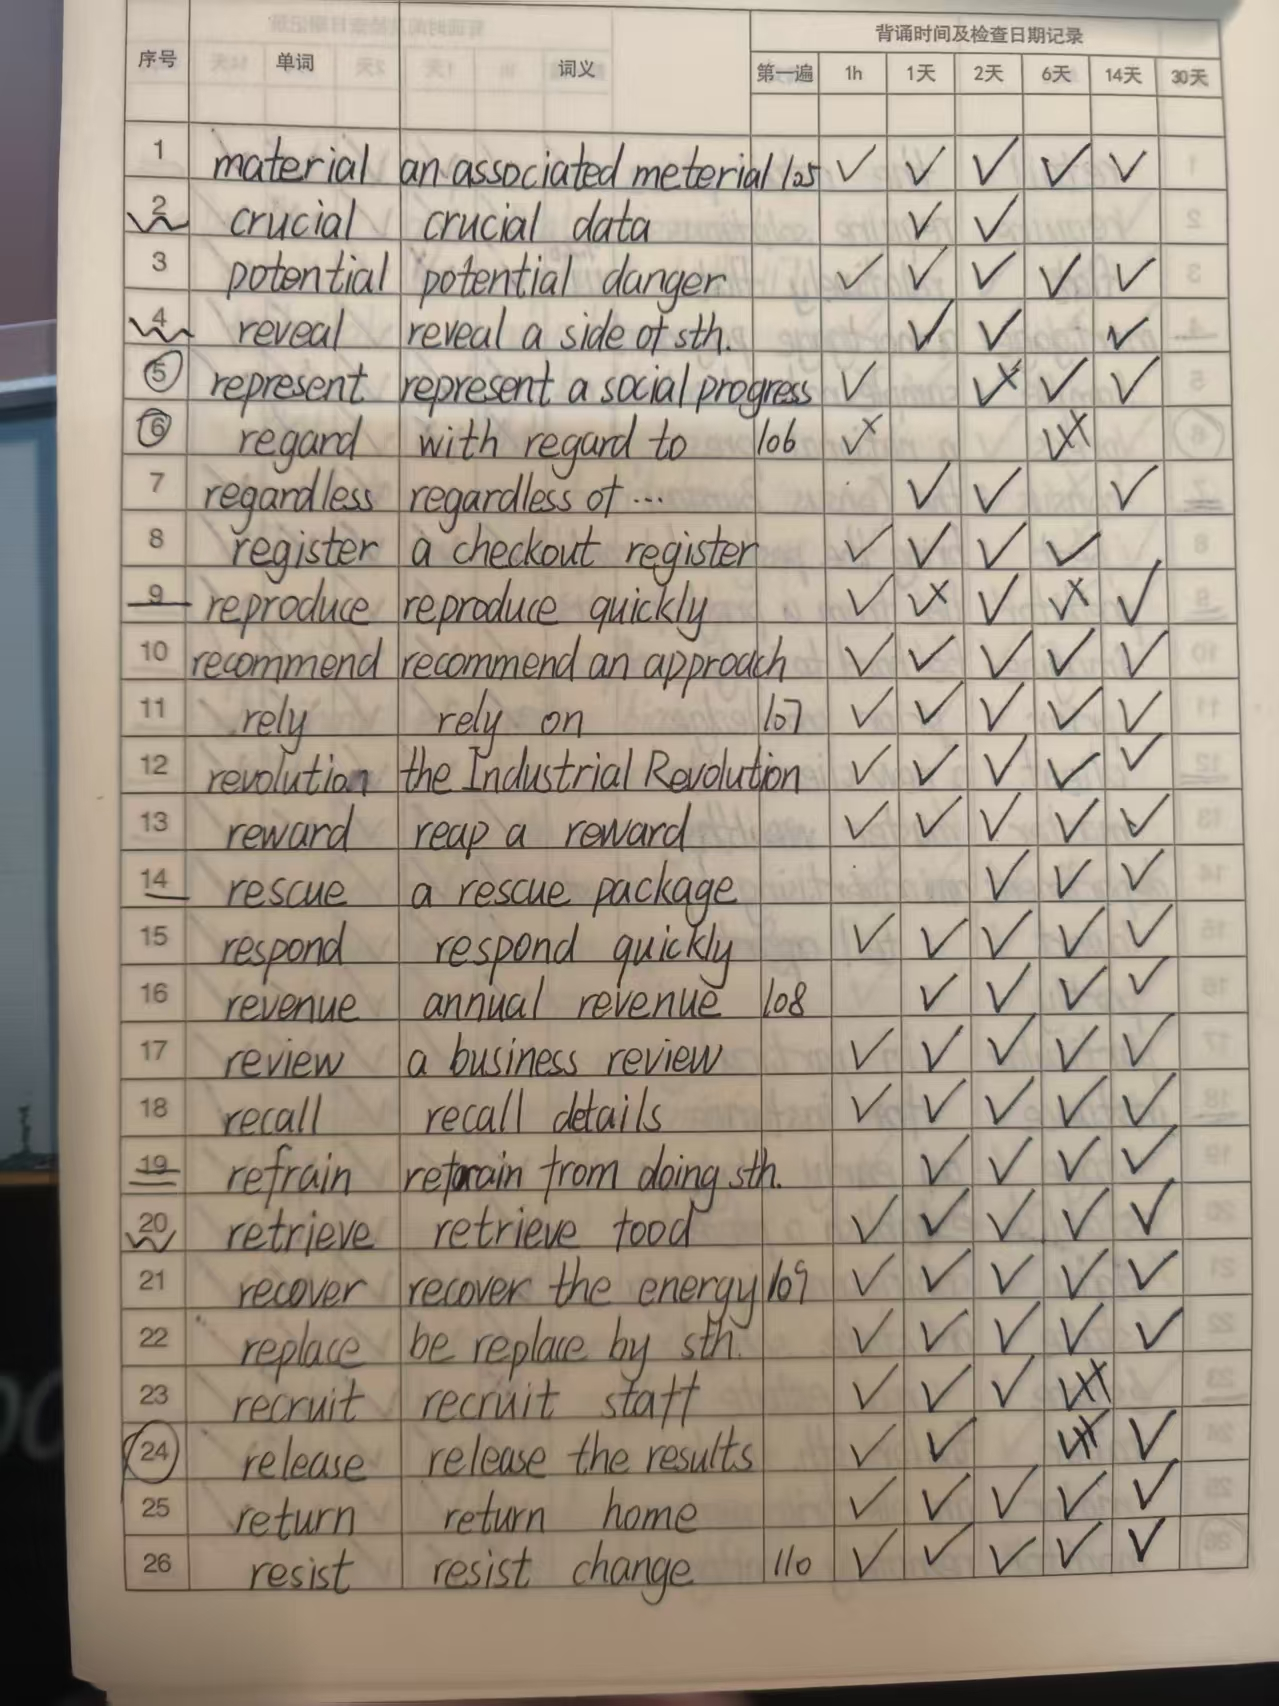 背诵时间及检查日期记录
序号 单词 词义 第一遍 1h 1天 2天 6天 14天 30天
1 material an associated meterial 105 ✓ ✓ ✓ ✓ ✓
2 crucial crucial data ✓ ✓
3 potential potential danger ✓ ✓ ✓ ✓ ✓
4 reveal reveal a side of sth. ✓ ✓ ✓
5 represent represent a social progress ✓ ✓× ✓ ✓
6 regard with regard to 106 ✓× ✓××
7 regardless regardless of ... ✓ ✓ ✓
8 register a checkout register ✓ ✓ ✓ ✓
9 reproduce reproduce quickly ✓ ✓× ✓ ✓× ✓
10 recommend recommend an approach ✓ ✓ ✓ ✓ ✓
11 rely rely on 107 ✓ ✓ ✓ ✓ ✓
12 revolution the Industrial Revolution ✓ ✓ ✓ ✓ ✓
13 reward reap a reward ✓ ✓ ✓ ✓ ✓
14 rescue a rescue package ✓ ✓ ✓
15 respond respond quickly ✓ ✓ ✓ ✓ ✓
16 revenue annual revenue 108 ✓ ✓ ✓ ✓
17 review a business review ✓ ✓ ✓ ✓ ✓
18 recall recall details ✓ ✓ ✓ ✓ ✓
19 refrain refrain from doing sth. ✓ ✓ ✓ ✓
20 retrieve retrieve food ✓ ✓ ✓ ✓ ✓
21 recover recover the energy 109 ✓ ✓ ✓ ✓ ✓
22 replace be replace by sth. ✓ ✓ ✓ ✓ ✓
23 recruit recruit staff ✓ ✓ ✓ ✓××
24 release release the results ✓ ✓ ✓×× ✓
25 return return home ✓ ✓ ✓ ✓ ✓
26 resist resist change 110 ✓ ✓ ✓ ✓ ✓